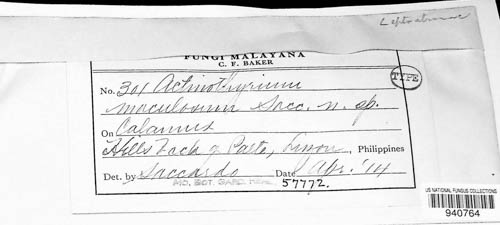 FUNGI MALAYANA
C. F. BAKER
TYPE
No. 301 Actinothyrium
maculosum Sacc. n. sp.
On Calamus
Hills back of Paete, Luzon, Philippines
Det. by Saccardo Date Apr. '14
MO. BOT. GARD. HERB.
57772.
US NATIONAL FUNGUS COLLECTIONS
940764